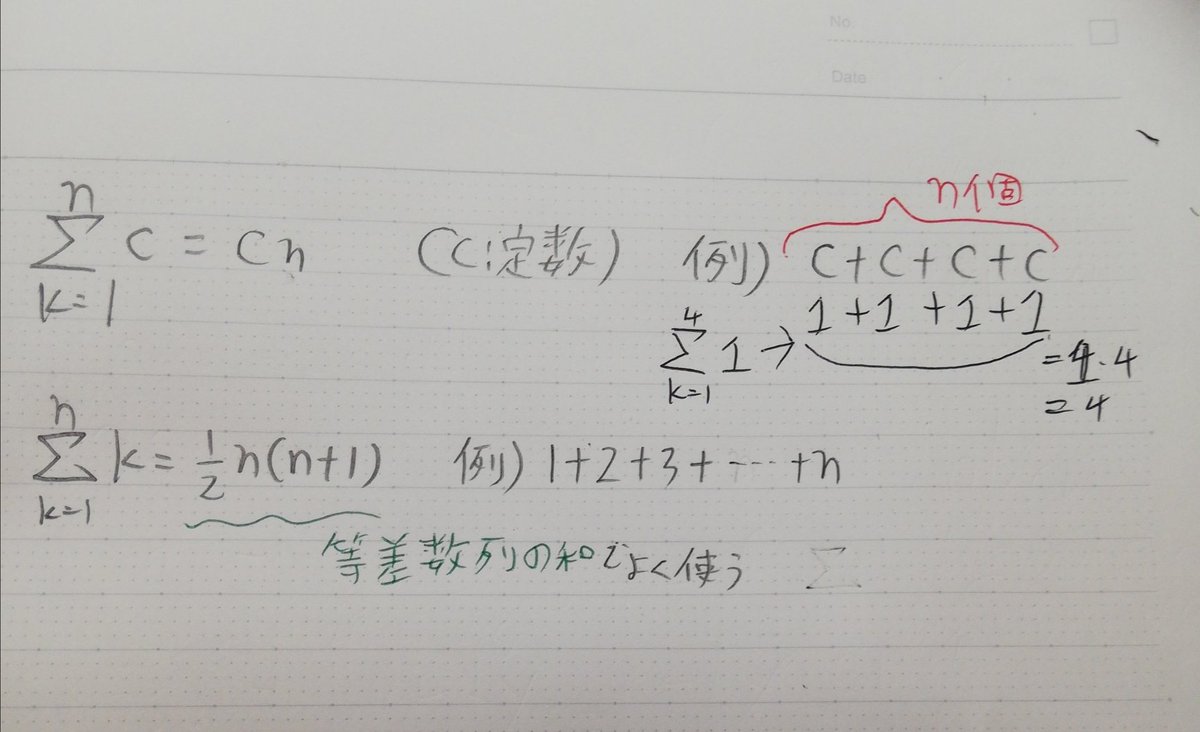 No.
Date
n個
n
Σ c = cn (c:定数) 例) c+c+c+c
k=1
4
Σ 1 → 1+1+1+1
k=1
=1・4
=4
n
Σ k = 1/2 n(n+1) 例) 1+2+3+…+n
k=1
等差数列の和でよく使う Σ